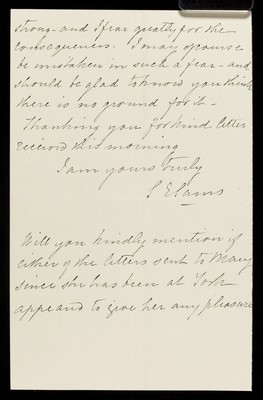 strong - and I fear greatly for the
consequences. I may of course
be mistaken in such a fear - and
should be glad to know you think
there is no ground for it -
Thanking you for kind letter
received this morning
I am yours truly
S E
Will you kindly mention if
either of the letters sent to Mary
since she has been at York
appeared to give her any pleasure